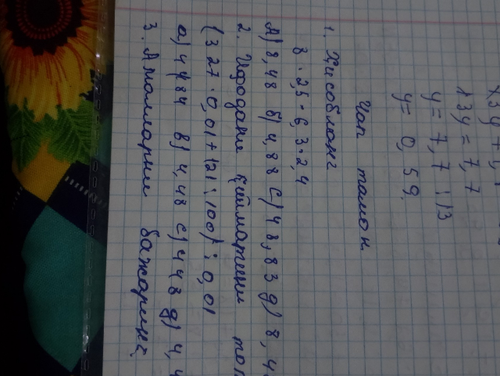 13y = 7,7
y = 7,7 : 13
y = 0,59.
Чап томон
1. Ҳисобланг
8·2,5 - 6,3·2,4
А) 8,48 б) 4,88 С) 48,83 д) 8,4
2. Ифодание қийматини топ
(327·0,01+121:100):0,01
а) 4484 в) 4,48 с) 448 д) 4,4
3. Амалларни бажаринг,